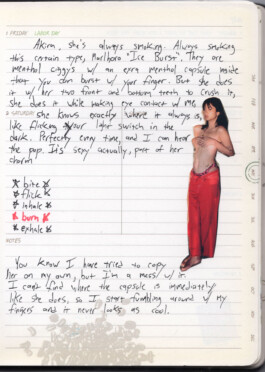 1 FRIDAY LABOR DAY
Akira, she's always smoking. Always smoking
this certain type, Marlboro "Ice Burst". They are
menthol ciggys w/ an extra menthol capsule inside
that you can burst w/ your finger. But she does
it w/ her two front and bottom teeth to crush it,
she does it while making eye contact w/ me,
2 SATURDAY she knows exactly where it always is,
like flicking your light switch in the
dark. Perfectly every time, and I can hear
the pop. It's sexy actually, part of her
charm
bite
flick
inhale
burn
exhale
NOTES
You know I have tried to copy
her on my own, but I'm a mess w/ it.
I can't find where the capsule is immediately
like she does, so I start fumbling around w/ my
fingers and it never looks as cool.